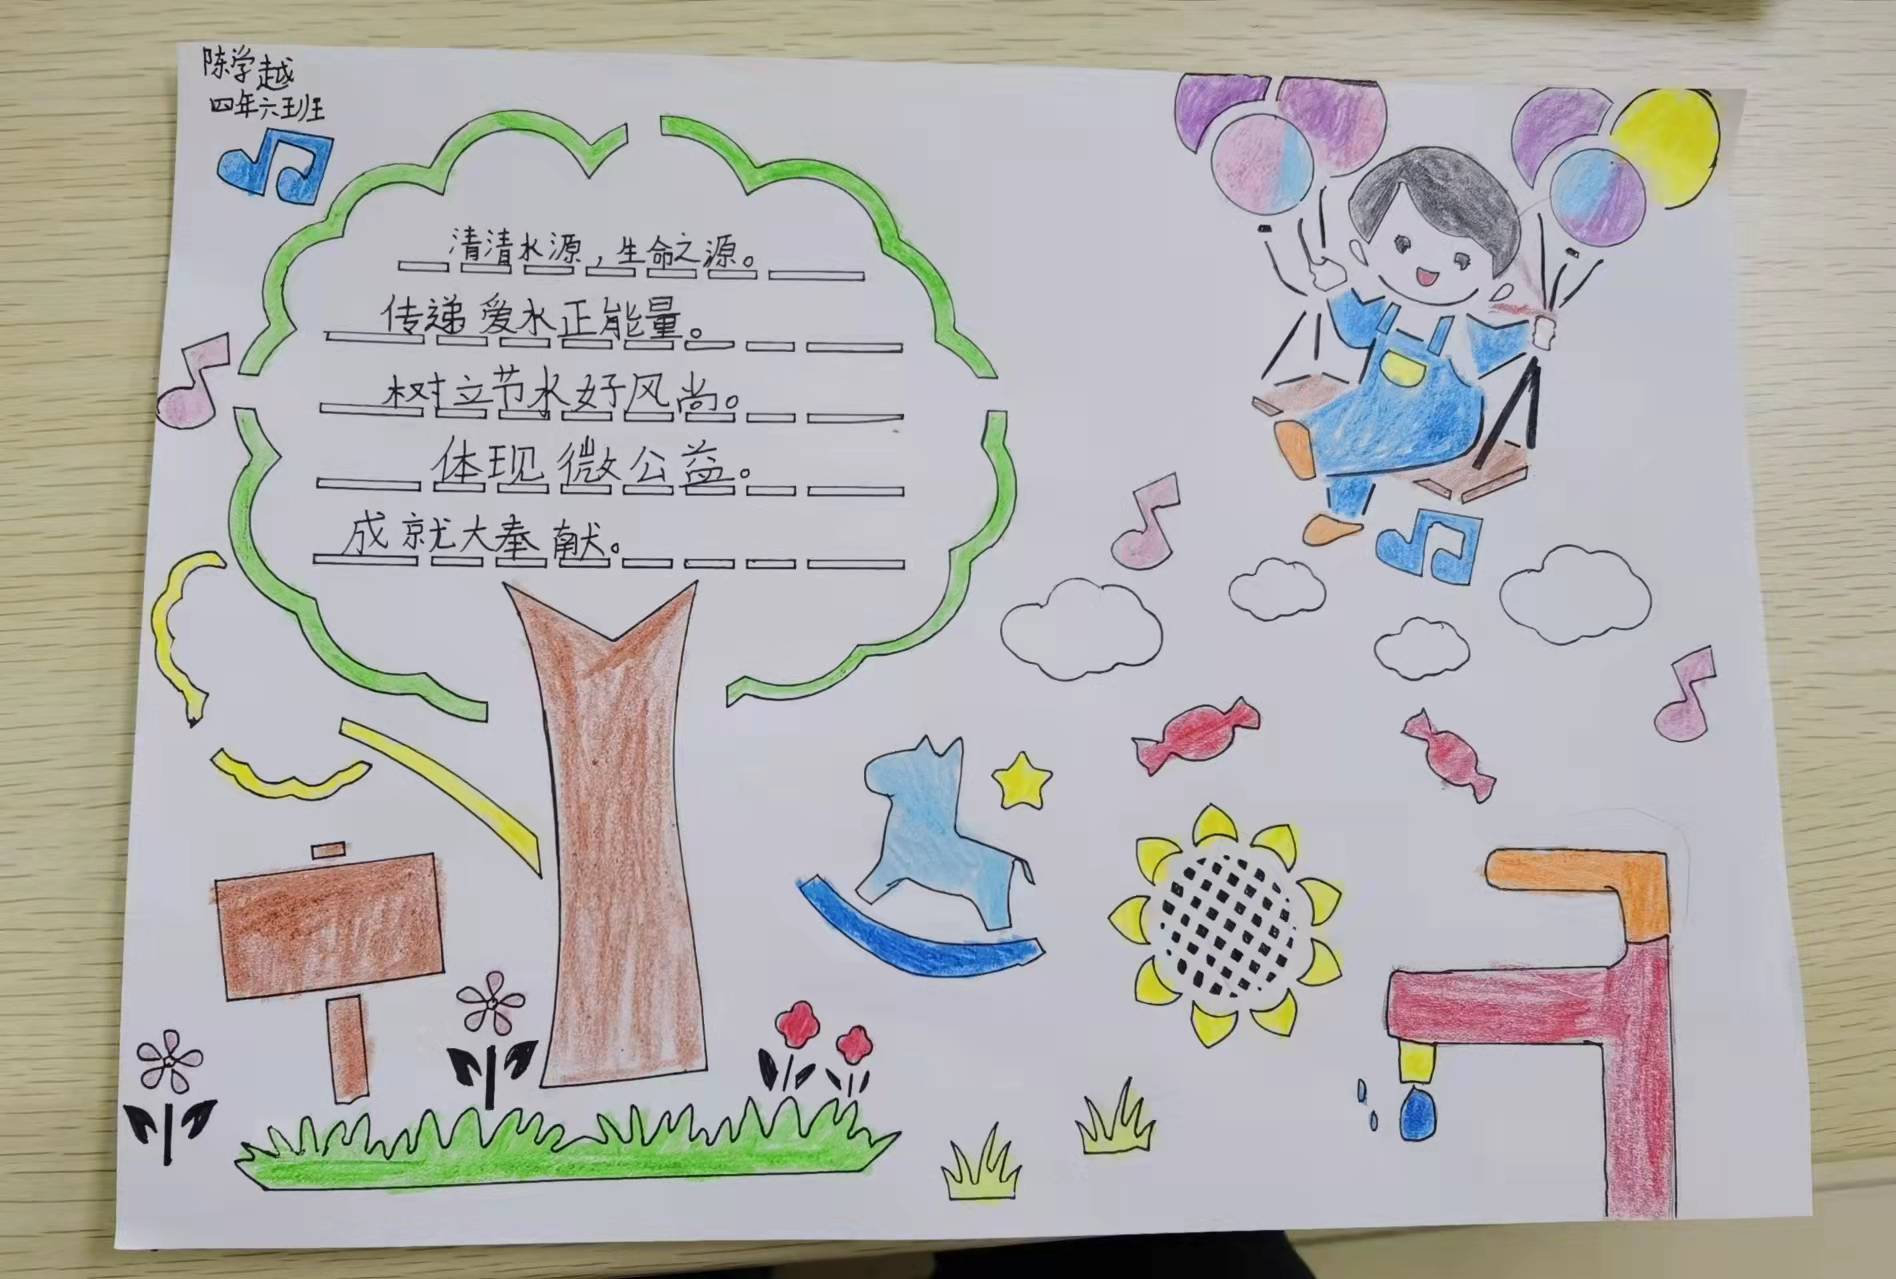 陈学越
四年六班
清清水源，生命之源。
传递爱水正能量。
树立节水好风尚。
体现微公益。
成就大奉献。